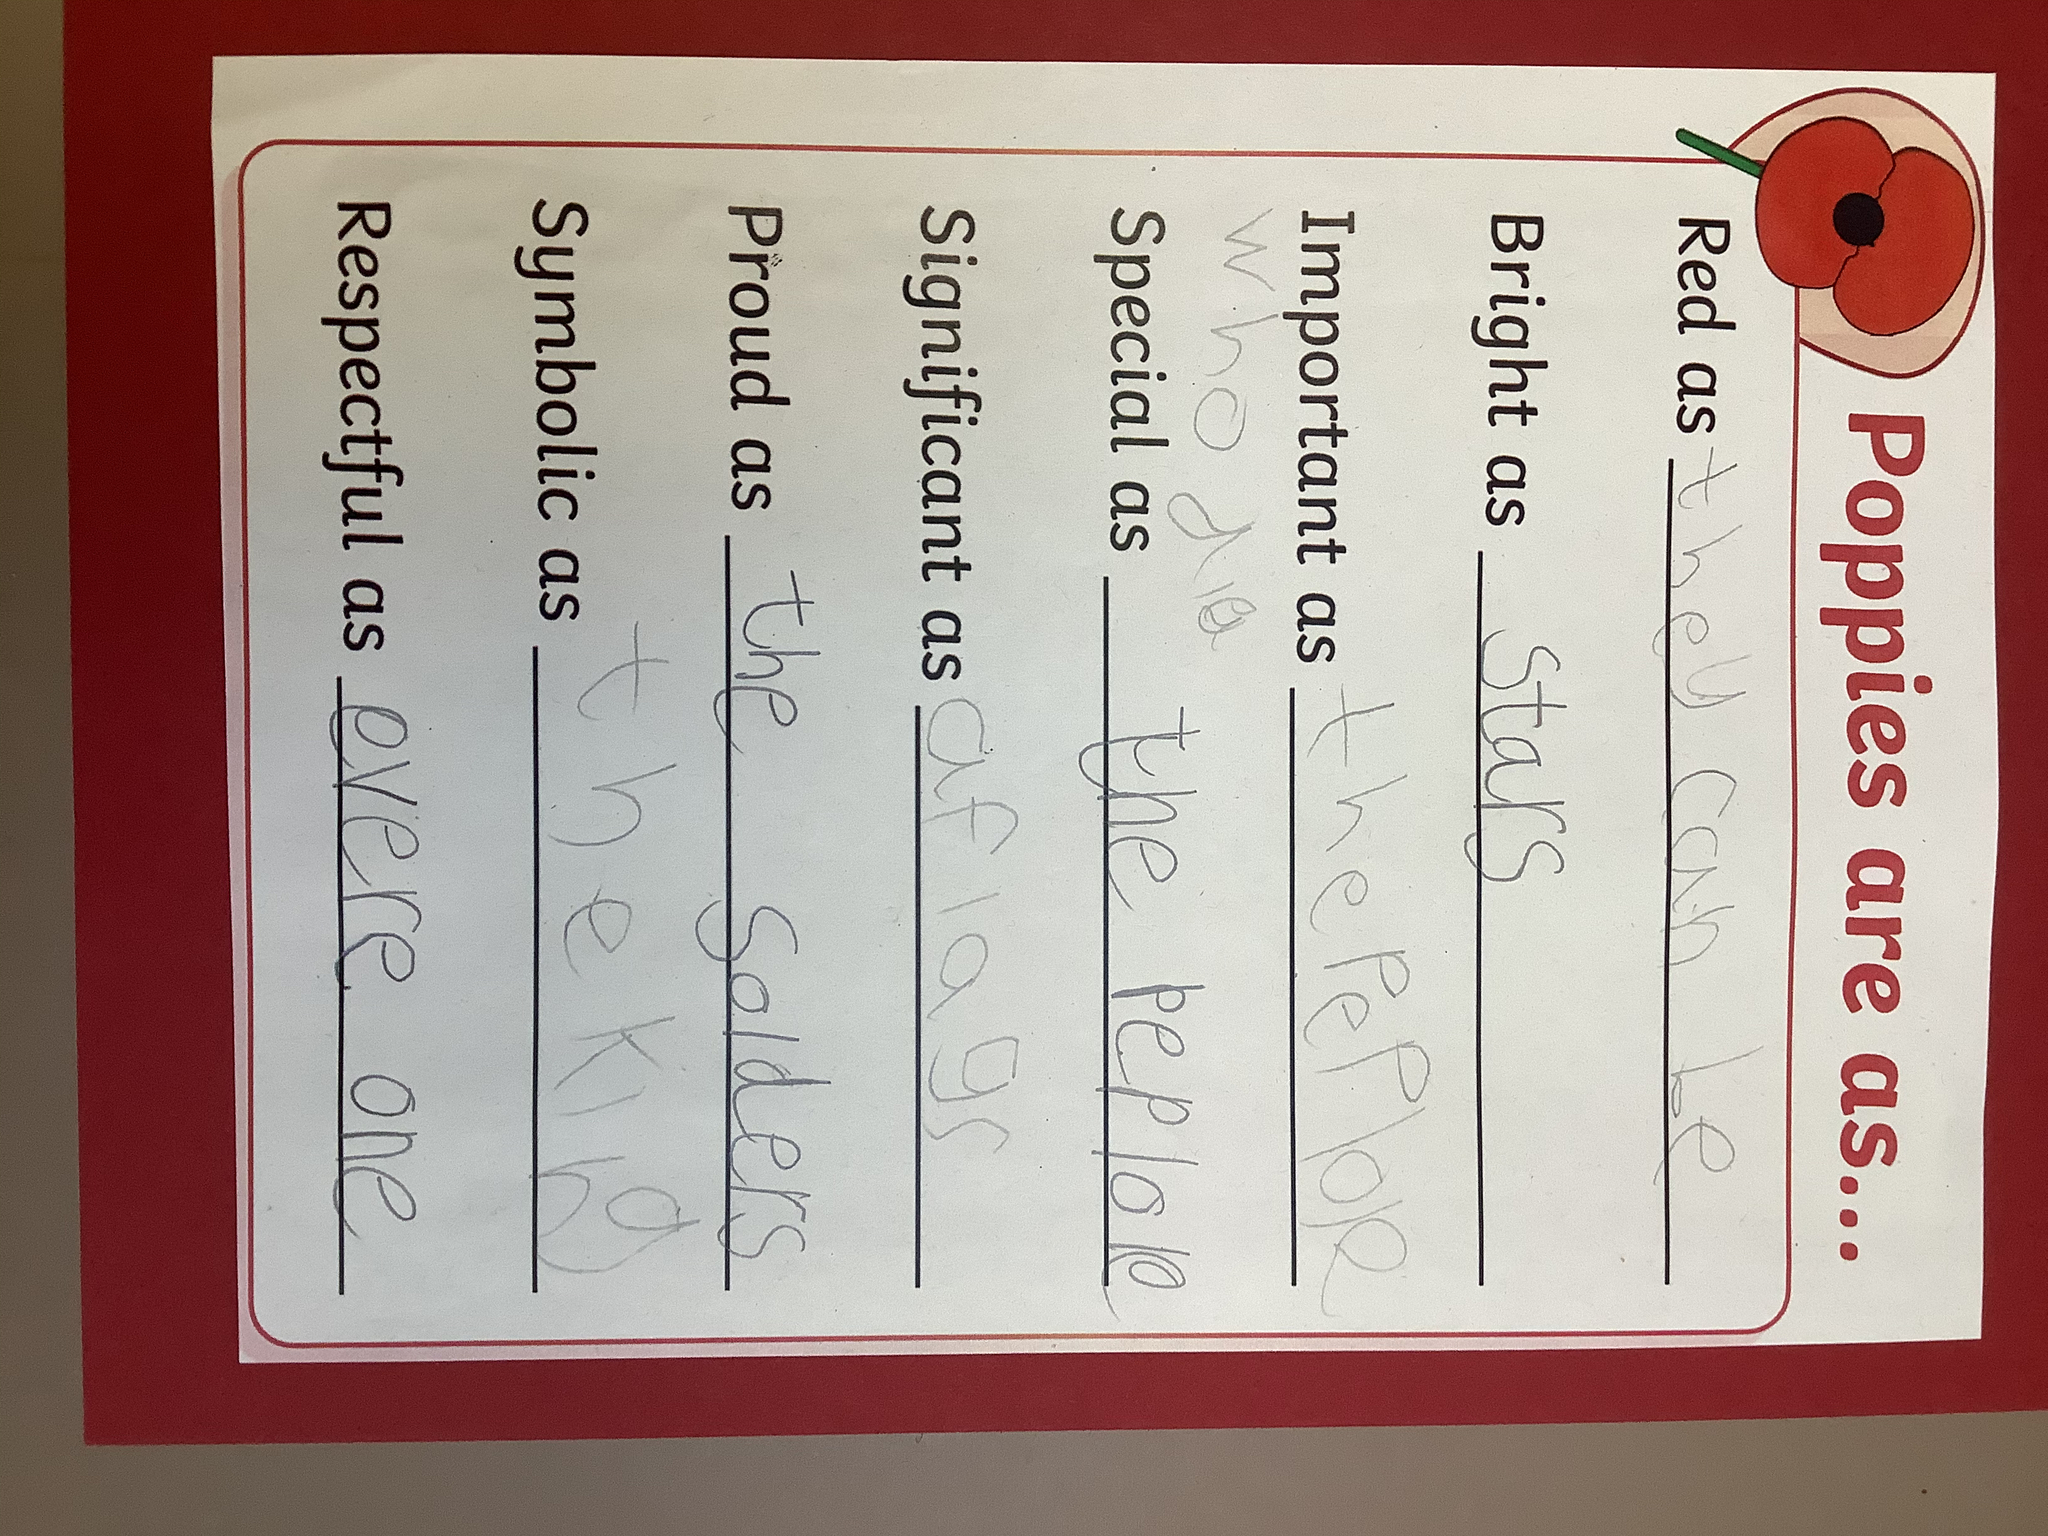 Poppies are as...
Red as they can be
Bright as stars
Important as the peplole
who die
Special as the peplole
Significant as a flags
Proud as the solders
Symbolic as the king
Respectful as evere one